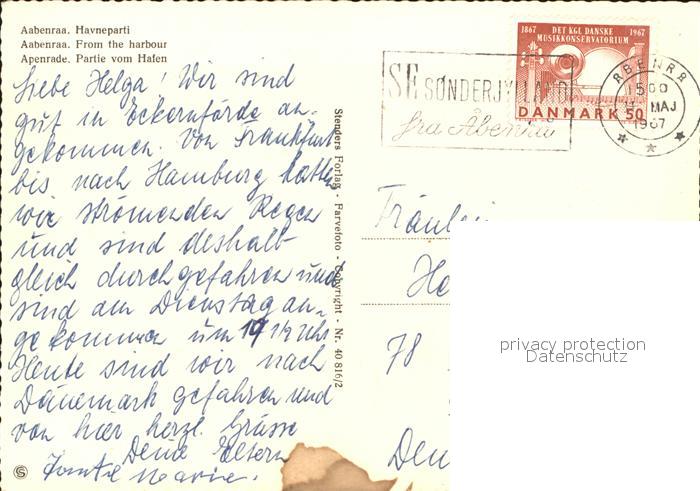 Aabenraa. Havneparti
Aabenraa. From the harbour
Apenrade. Partie vom Hafen
Liebe Helga! Wir sind
gut in Eckernförde an-
gekommen. Von Frankfurt
bis nach Hamburg hatten
wir strömenden Regen
und sind deshalb
gleich durchgefahren und
sind am Dienstag an-
gekommen um 19 Uhr
Heute sind wir nach
Dänemark gefahren und
von hier herzl. Grüsse
Deine Eltern
Marie.
Stenders Forlag - Farvefoto - Copyright - Nr. 40 816/2
1867 DET KGL DANSKE 1967
MUSIKKONSERVATORIUM
DANMARK 50
SE SØNDERJYLLAND
fra Åbenrå
ÅBENRÅ
1500
MAJ
1967
Fräulein
He
78
privacy protection
Datenschutz